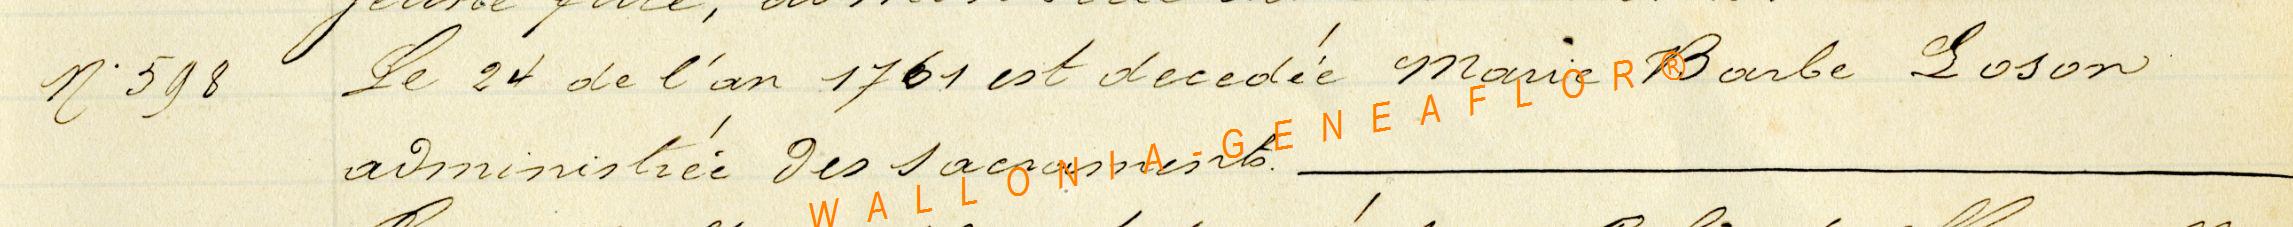 jeune fille,
N° 598 Le 24 de l'an 1761 est decedée Marie Barbe Loson
administrée des sacraments.
WALLONIA-GENEAFLOR®